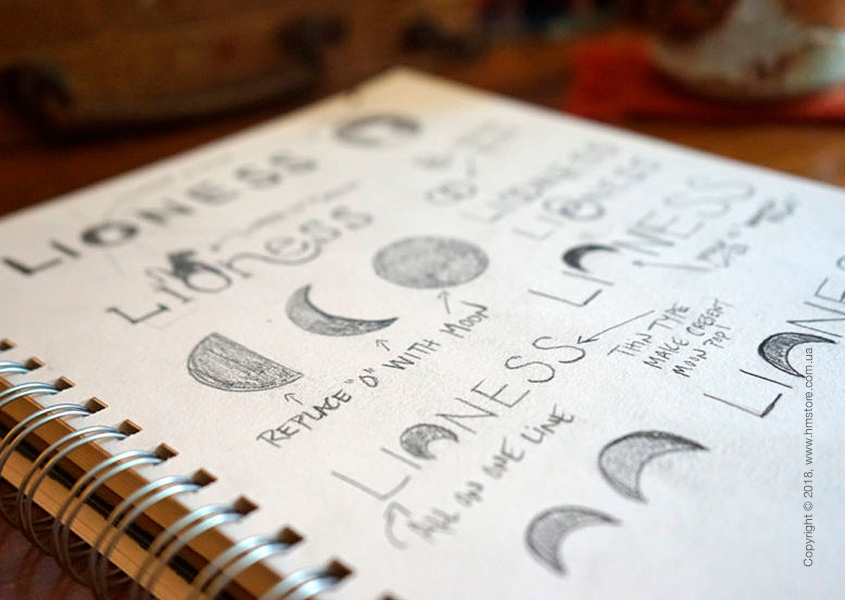 LIONESS
Lioness
LIONESS
LIONESS
REPLACE "O" WITH MOON
LIONESS
THIN TYPE
MAKE CRESENT
MOON POP!
LIONESS
ALL ON ONE LINE
LIONE
Copyright © 2018, www.hmstore.com.ua